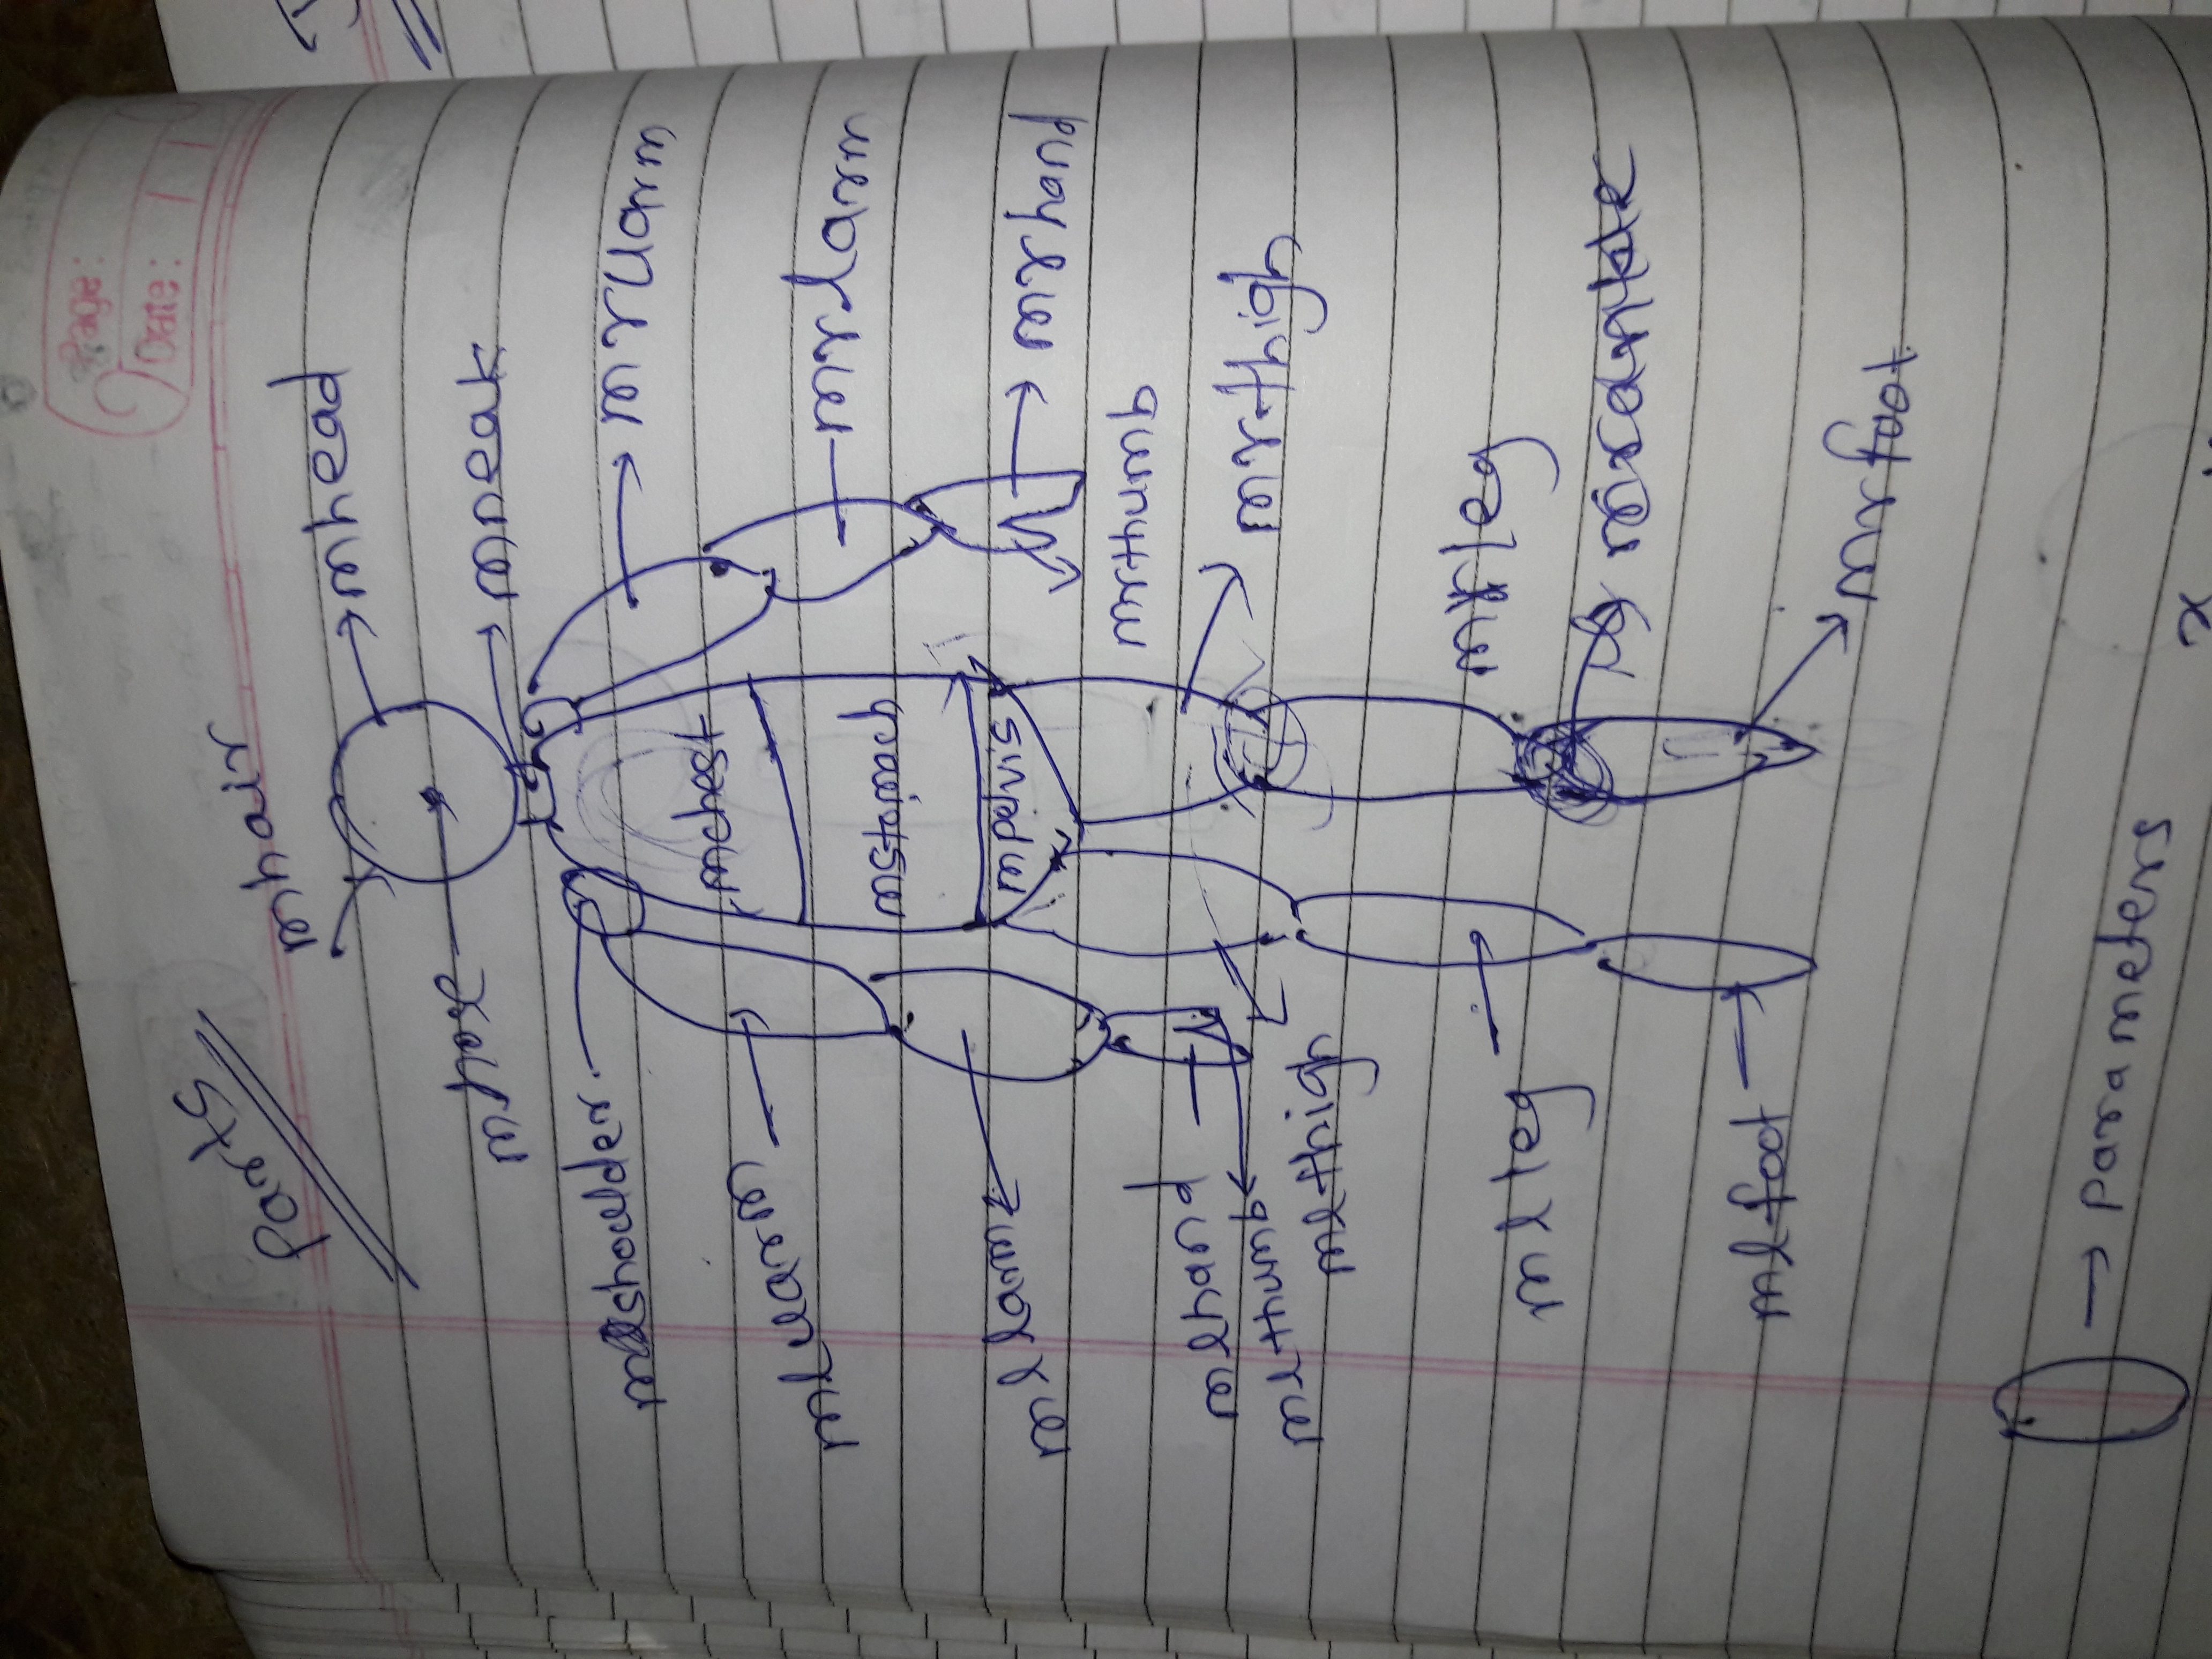 Page:
Date:
Parts
mhair
mhead
mnose
mneak
mshoulder
mruarm
mchest
mluarm
mrlarm
mstomach
mllarm
mpelvis
mrhand
mrthumb
mlhand
mlthumb
mrthigh
mlthigh
mrleg
mlleg
mlfoot
mrfoot.
parameters
x